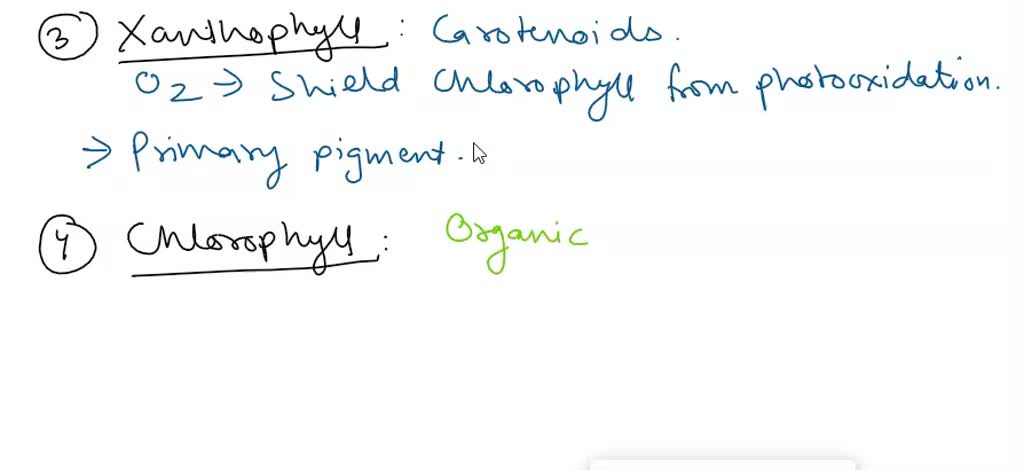 ③ Xanthophyll : Carotenoids.
O2 → Shield Chlorophyll from photooxidation.
→ Primary pigment.
④ Chlorophyll : Organic